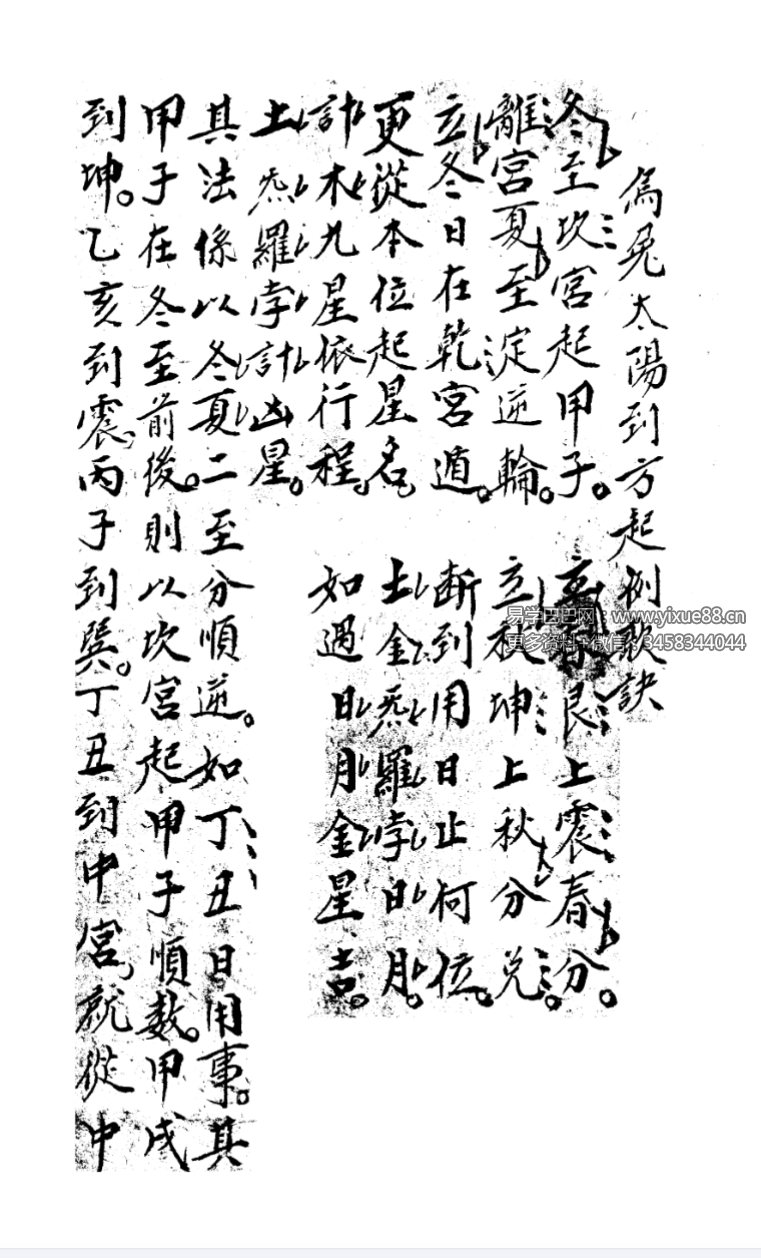 烏兔太陽到方起例歌訣
冬至坎宮起甲子。立春艮上震春分。
離宮夏至淀逆輪。立秋坤上秋分兌。
立冬日在乾宮遁。断到用日止何位。
更從本位起星名。土金炁羅孛日月。
計木九星依行程。如遇日月金星吉。
土炁羅孛計凶星。
其法係以冬夏二至分順逆。如丁丑日用事。其
甲子在冬至前後。則以坎宮起甲子順数。甲戌
到坤。乙亥到震。丙子到巽。丁丑到中宮，就從中
易学巴巴网：www.yixue88.cn
更多资料 微信 3458344044